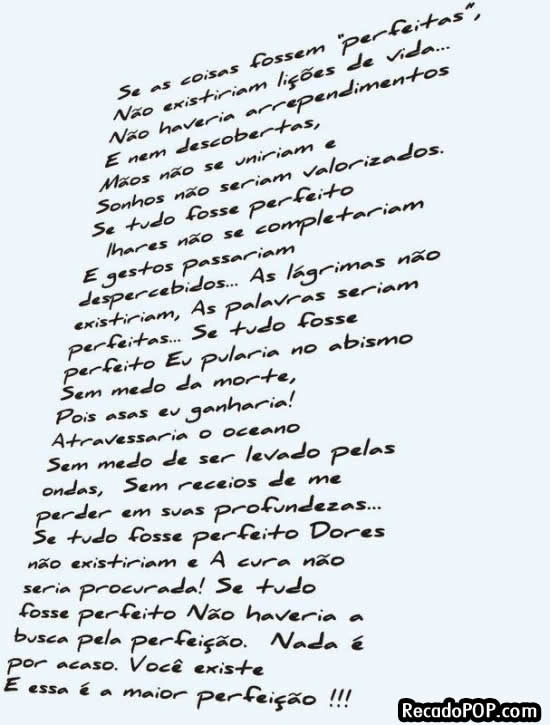 Se as coisas fossem "perfeitas",
Não existiriam lições de vida...
Não haveria arrependimentos
E nem descobertas,
Mãos não se uniriam e
Sonhos não seriam valorizados.
Se tudo fosse perfeito
lhares não se completariam
E gestos passariam
despercebidos... As lágrimas não
existiriam, As palavras seriam
perfeitas... Se tudo fosse
perfeito Eu pularia no abismo
Sem medo da morte,
Pois asas eu ganharia!
Atravessaria o oceano
Sem medo de ser levado pelas
ondas, Sem receios de me
perder em suas profundezas...
Se tudo fosse perfeito Dores
não existiriam e A cura não
seria procurada! Se tudo
fosse perfeito Não haveria a
busca pela perfeição. Nada é
por acaso. Você existe
E essa é a maior perfeição !!!
RecadoPOP.com